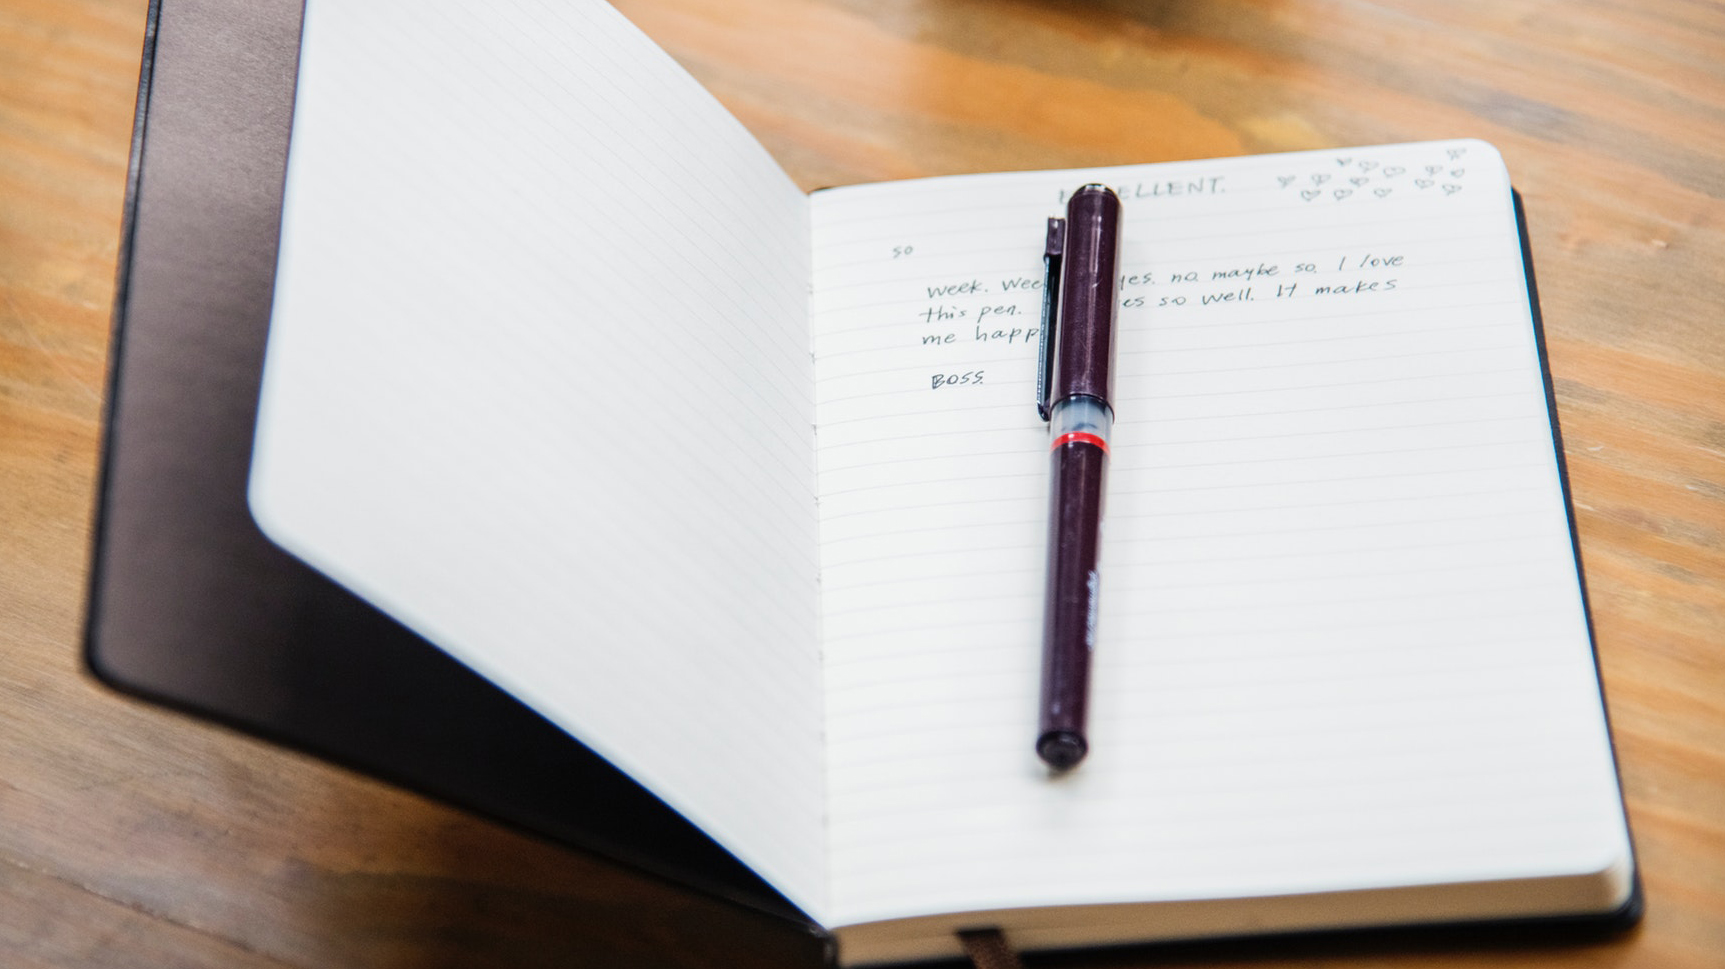 ELLENT.
so
week. Wee yes. no. maybe so. I love
this pen. es so well. It makes
me happ
BOSS.